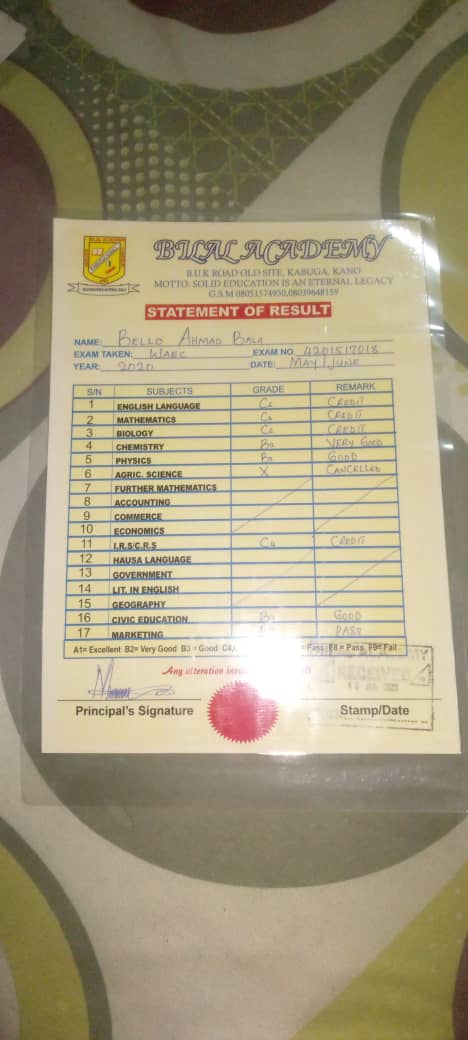 BILAL ACADEMY
B.U.K ROAD OLD SITE, KABUGA, KANO
MOTTO: SOLID EDUCATION IS AN ETERNAL LEGACY
G.S.M 08051574950,08039648159
STATEMENT OF RESULT
NAME: BELLO AHMAD BALA
EXAM TAKEN: WAEC EXAM NO. 4201517018
YEAR: 2020 DATE: MAY/JUNE
S/N SUBJECTS GRADE REMARK
1 ENGLISH LANGUAGE CREDIT
2 MATHEMATICS CREDIT
3 BIOLOGY CREDIT
4 CHEMISTRY VERY GOOD
5 PHYSICS GOOD
6 AGRIC. SCIENCE X CANCELLED
7 FURTHER MATHEMATICS
8 ACCOUNTING
9 COMMERCE
10 ECONOMICS
11 I.R.S/C.R.S C4 CREDIT
12 HAUSA LANGUAGE
13 GOVERNMENT
14 LIT. IN ENGLISH
15 GEOGRAPHY
16 CIVIC EDUCATION B3 GOOD
17 MARKETING PASS
A1= Excellent B2= Very Good B3 = Good C4, = Pass E8 = Pass F9= Fail
Any alteration
RECEIVED
Principal's Signature Stamp/Date